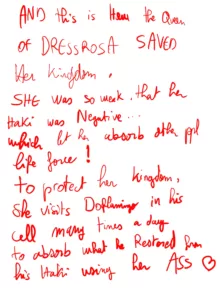 AND this is How the Queen
OF DRESSROSA SAVED
Her Kingdom,
SHE was so weak, that her
Haki was Negative...
which let her absorb other ppl
life force!
to protect her kingdom,
She visits Doflamingo in his
cell many times a day
to absorb what he Restored from
his Haki using her ASS ♡